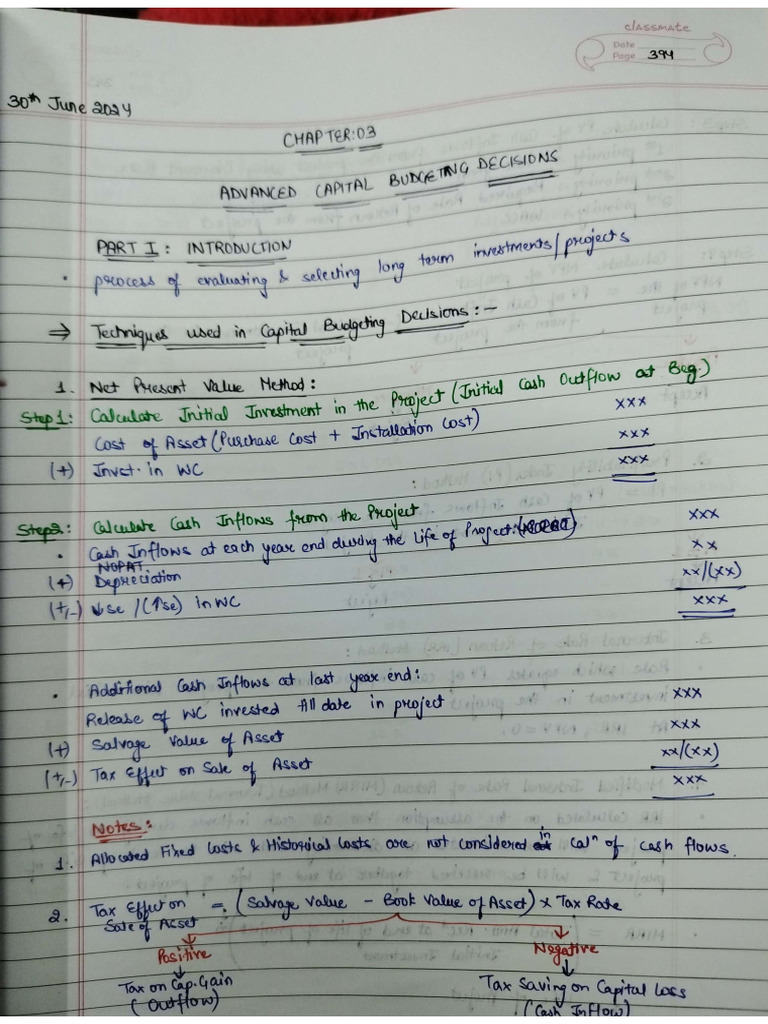 classmate
Date
Page 394
30th June 2024
CHAPTER:03
ADVANCED CAPITAL BUDGETING DECISIONS
PART I: INTRODUCTION
• process of evaluating & selecting long term investments/projects
⇒ Techniques used in Capital Budgeting Decisions:-
1. Net Present Value Method:
Step1: Calculate Initial Investment in the Project (Initial Cash Outflow at Beg.)
Cost of Asset (Purchase Cost + Installation Cost) xxx
(+) Invst. in WC xxx
xxx
Step2: Calculate Cash Inflows from the Project
• Cash Inflows at each year end during the Life of Project:
NOPAT xxx
(+) Depreciation xx
(+,-) ↓se /(↑se) in WC xx/(xx)
xxx
• Additional Cash Inflows at last year end:
Release of WC invested till date in project xxx
(+) Salvage Value of Asset xxx
(+,-) Tax Effect on Sale of Asset xx/(xx)
xxx
Notes:
1. Allocated Fixed Costs & Historical Costs are not considered in Calⁿ of cash flows.
2. Tax Effect on Sale of Asset = (Salvage Value - Book Value of Asset) x Tax Rate
Positive Negative
Tax on Cap. Gain Tax Saving on Capital Loss
(Outflow) (Cash Inflow)